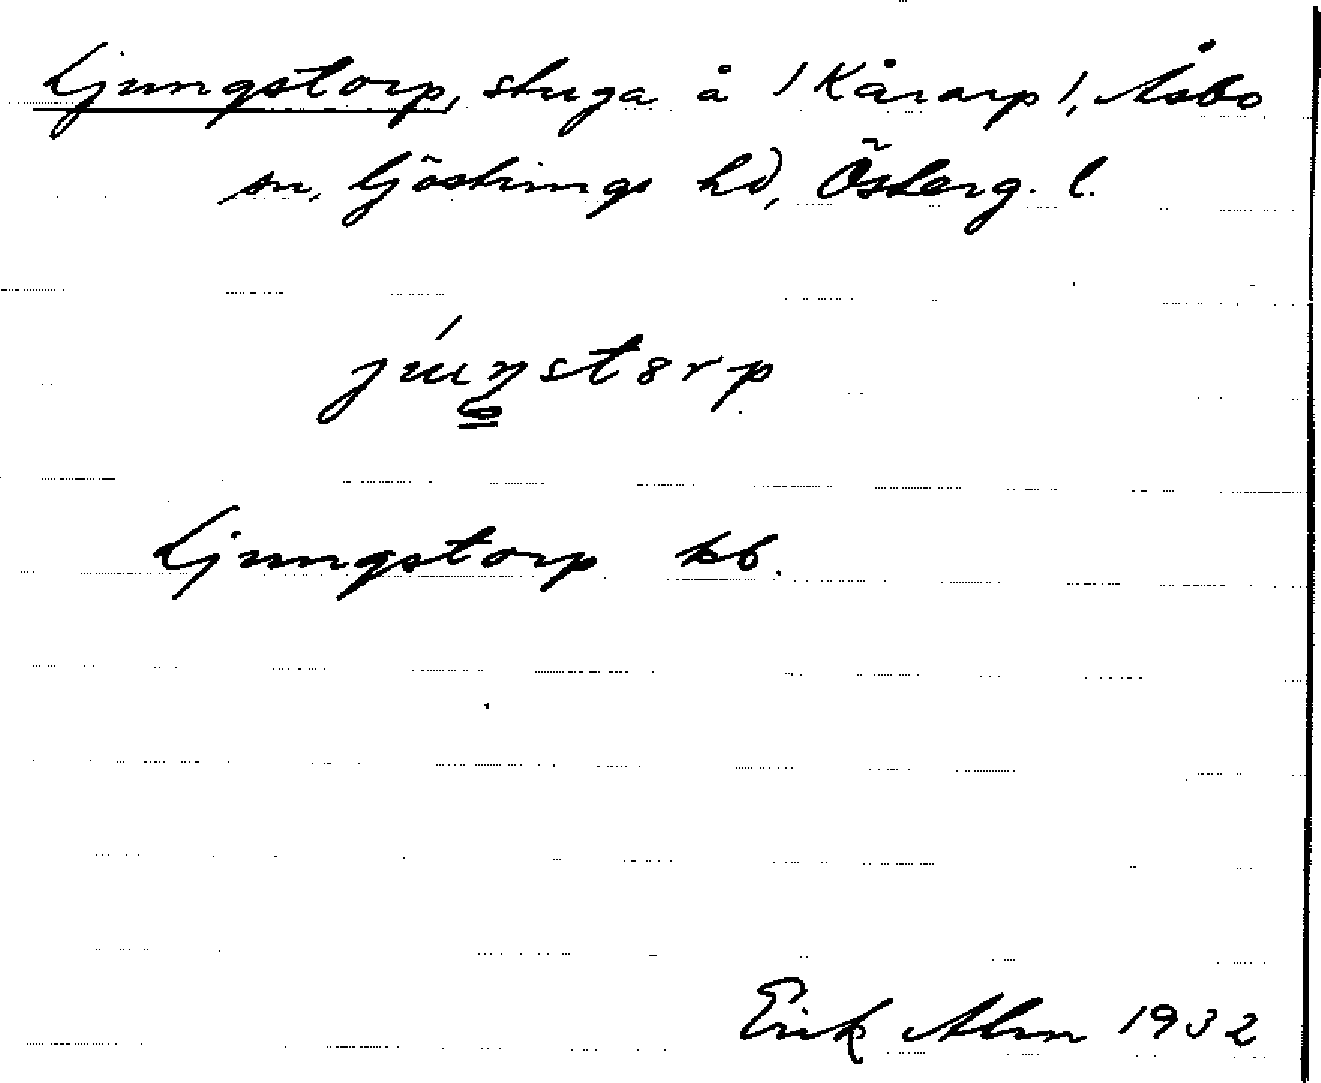 Ljungstorp, stuga å /Kårarp/, Åsbo
sn, Göstrings hd, Österg. l.
júŋstorp
Ljungstorp kb.
Erik Alm 1932